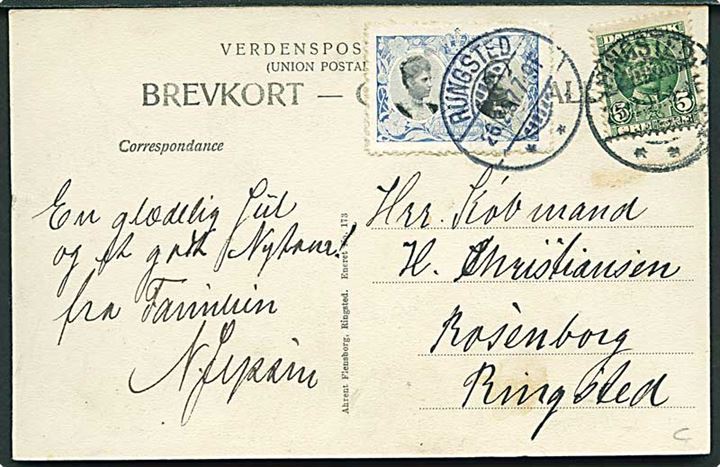 VERDENSPOS
(UNION POSTAL
BREVKORT — C
AL
Correspondance
RUNGSTED
DANMARK
5 5
En glædelig Jul
og et godt Nytaar!
fra Familien
Herr. Købmand
H. Christiansen
Rosènborg
Ringsted
Ahrent Flensborg, Ringsted. Eneret No. 173
C